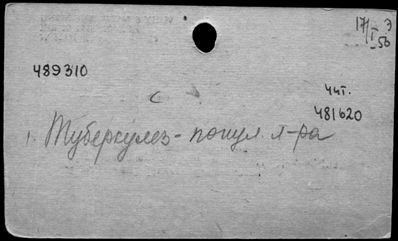 17/I-56 Э
489310
С
чит.
481620
1. Туберкулез - попул. л-ра